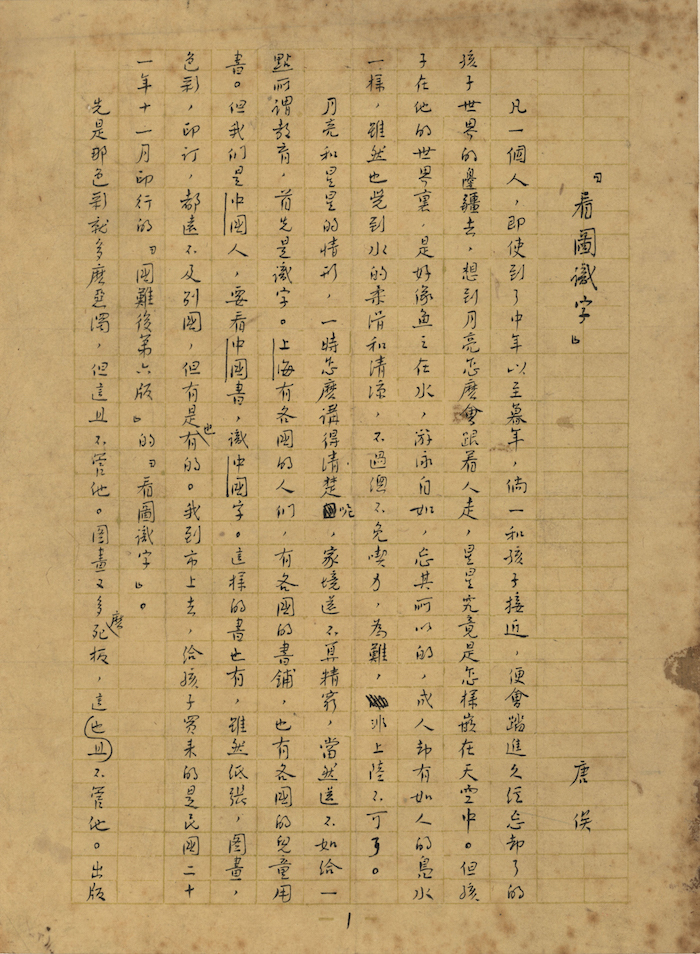 『看圖識字』
唐俟
凡一個人，即使到了中年以至暮年，倘一和孩子接近，便會踏進久經忘却了的
孩子世界的邊疆去，想到月亮怎麼會跟着人走，星星究竟是怎樣嵌在天空中。但孩
子在他的世界裏，是好像魚之在水，游泳自如，忘其所以的，成人却有如人的鳧水
一樣，雖然也覺到水的柔滑和清涼，不過總不免喫力，為難，非上陸不可了。
月亮和星星的情形，一時怎麼講得清楚呢，家境還不算精窮，當然還不如給一
點所謂教育，首先是識字。上海有各國的人們，有各國的書鋪，也有各國的兒童用
書。但我們是中國人，要看中國書，識中國字。這樣的書也有，雖然紙張，圖畫，
色彩，印訂，都遠不及列國，但有是也有的。我到市上去，給孩子買来的是民國二十
一年十一月印行的『國難後第六版』的『看圖識字』。
先是那色彩就多麼惡濁，但這且不管他。圖畫又多麼死板，這也且不管他。出版
1